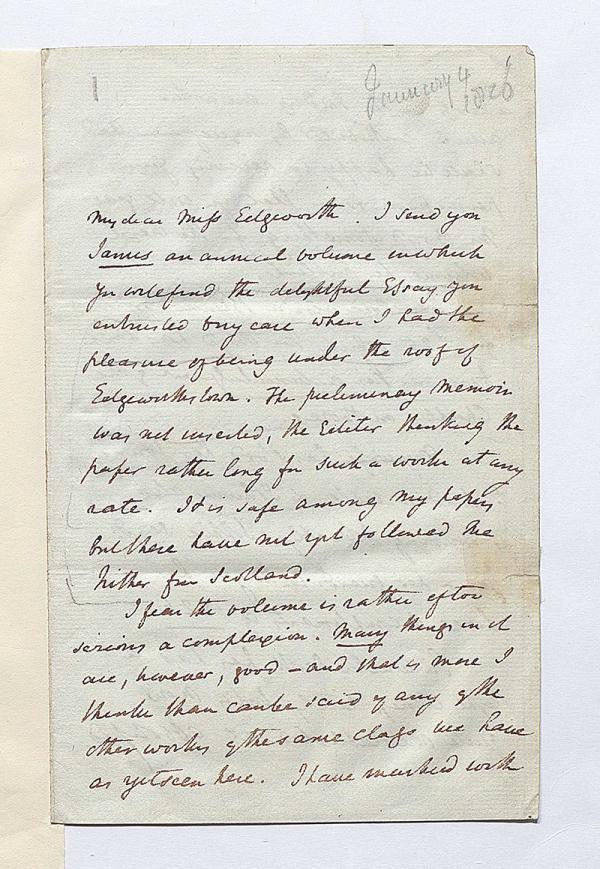 1
January 4
1826
My dear Miss Edgeworth. I send you
Janus an annual volume in which
you will find the delightful Essay you
entrusted to my care when I had the
pleasure of being under the roof of
Edgeworthstown. The preliminary Memoir
was not inserted, the Editor thinking the
paper rather long for such a work at any
rate. It is safe among my papers
but these have not yet followed me
hither from Scotland.
I fear the volume is rather of too
serious a complexion. Many things in it
are, however, good – and that is more I
think than can be said of any of the
other works of the same class we have
as yet seen here. I have marked with